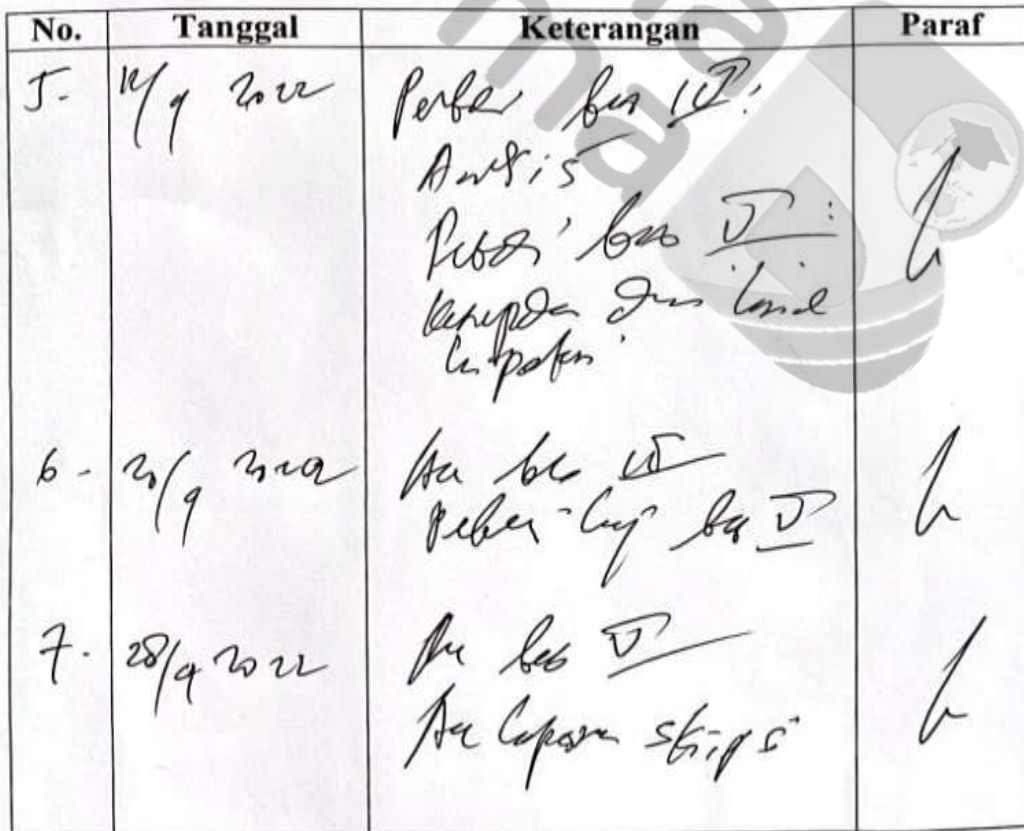 No. Tanggal Keterangan Paraf
5. 12/9 2022 Perbaiki bab IV:
Analisis
Perbaiki bab V:
Kesimpulan dan
6. 20/9 2022 Acc bab IV
Perbaiki lagi bab V
7. 28/9 2022 Acc bab V
Acc laporan skripsi